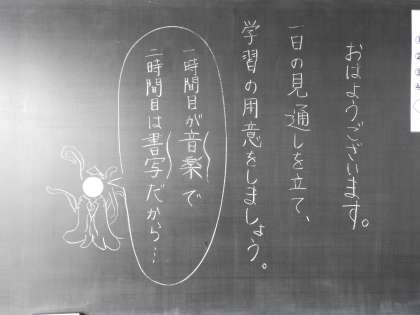 おはようございます。
一日の見通しを立て、
学習の用意をしましょう。
一時間目が音楽で
二時間目は書写だから…